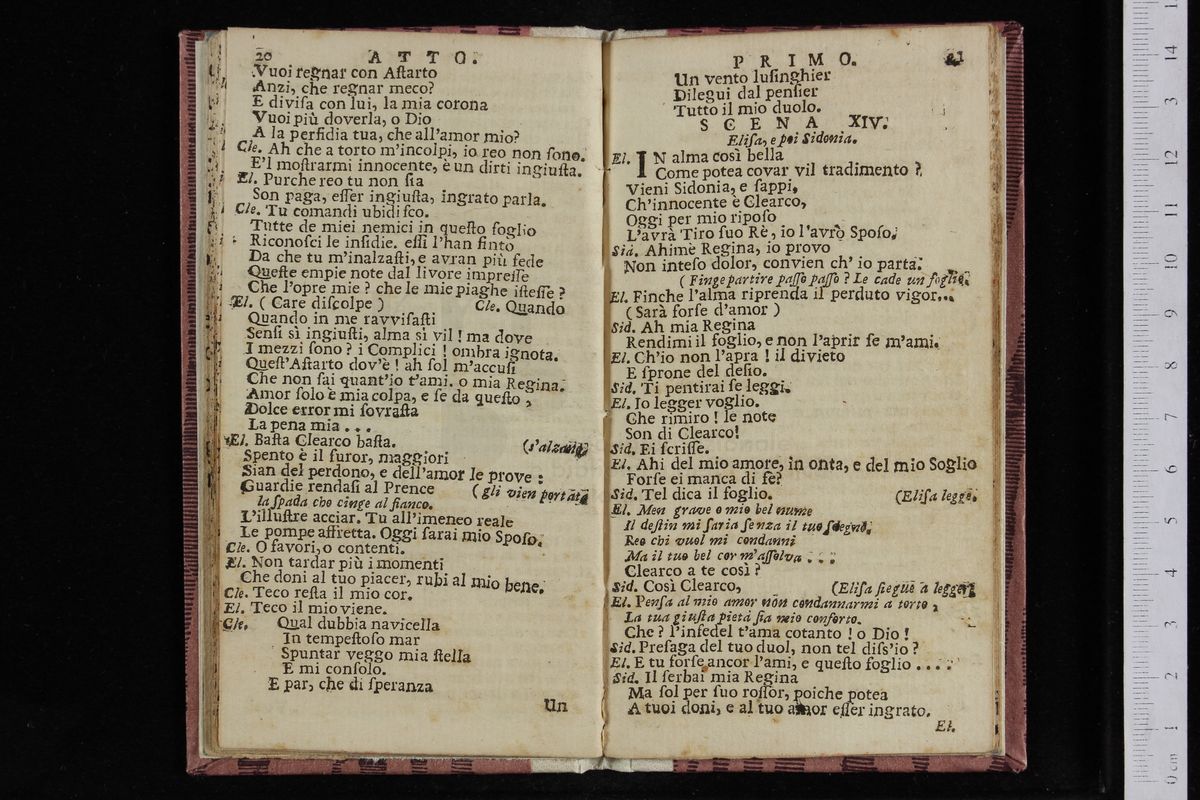 20 ATTO.
Vuoi regnar con Aſtarto
Anzi, che regnar meco?
E diviſa con lui, la mia corona
Vuoi più doverla, o Dio
A la perfidia tua, che all'amor mio?
Cle. Ah che a torto m'incolpi, io reo non ſono.
E'l moſtrarmi innocente, è un dirti ingiuſta.
El. Purche reo tu non ſia
Son paga, eſſer ingiuſta, ingrato parla.
Cle. Tu comandi ubidiſco.
Tutte de miei nemici in queſto foglio
Riconoſci le inſidie. eſſi l'han finto
Da che tu m'inalzaſti, e avran più fede
Queſte empie note dal livore impreſſe
Che l'opre mie? che le mie piaghe iſteſſe?
El. ( Care diſcolpe ) Cle. Quando
Quando in me ravviſaſti
Senſi sì ingiuſti, alma sì vil! ma dove
I mezzi ſono? i Complici! ombra ignota.
Queſt'Aſtarto dov'è! ah ſol m'accuſi
Che non ſai quant'io t'ami. o mia Regina.
Amor ſolo è mia colpa, e ſe da queſto,
Dolce error mi ſovraſta
La pena mia . . .
El. Baſta Clearco baſta. (s'alzano
Spento è il furor, maggiori
Sian del perdono, e dell'amor le prove:
Guardie rendaſi al Prence (gli vien portata
la ſpada che cinge al fianco.
L'illuſtre acciar. Tu all'imeneo reale
Le pompe affretta. Oggi ſarai mio Spoſo.
Cle. O favori, o contenti.
El. Non tardar più i momenti
Che doni al tuo piacer, rubi al mio bene.
Cle. Teco reſta il mio cor.
El. Teco il mio viene.
Cle. Qual dubbia navicella
In tempeſtoſo mar
Spuntar veggo mia ſtella
E mi conſolo.
E par, che di ſperanza
Un
PRIMO. 21
Un vento luſinghier
Dilegui dal penſier
Tutto il mio duolo.
SCENA XIV.
Eliſa, e poi Sidonia.
El. IN alma così bella
Come potea covar vil tradimento?
Vieni Sidonia, e ſappi,
Ch'innocente è Clearco,
Oggi per mio ripoſo
L'avrà Tiro ſuo Rè, io l'avrò Spoſo.
Sid. Ahimè Regina, io provo
Non inteſo dolor, convien ch' io parta.
( Finge partire paſſo paſſo? Le cade un foglio.
El. Finche l'alma riprenda il perduto vigor...
( Sarà forſe d'amor )
Sid. Ah mia Regina
Rendimi il foglio, e non l'aprir ſe m'ami.
El. Ch'io non l'apra! il divieto
E ſprone del deſio.
Sid. Ti pentirai ſe leggi.
El. Io legger voglio.
Che rimiro! le note
Son di Clearco!
Sid. Ei ſcriſſe.
El. Ahi del mio amore, in onta, e del mio Soglio
Forſe ei manca di fe?
Sid. Tel dica il foglio. (Eliſa legge.
El. Men grave o mio bel nume
Il deſtin mi ſaria ſenza il tuo ſdegno.
Reo chi vuol mi condanni
Ma il tuo bel cor m'aſſolva . . .
Clearco a te così?
Sid. Così Clearco, (Eliſa ſiegue a legger
El. Penſa al mio amor non condannarmi a torto,
La tua giuſta pietà ſia mio conforto.
Che? l'infedel t'ama cotanto! o Dio!
Sid. Preſaga del tuo duol, non tel diſs'io?
El. E tu forſe ancor l'ami, e queſto foglio . . . .
Sid. Il ſerbai mia Regina
Ma ſol per ſuo roſſor, poiche potea
A tuoi doni, e al tuo amor eſſer ingrato.
El.